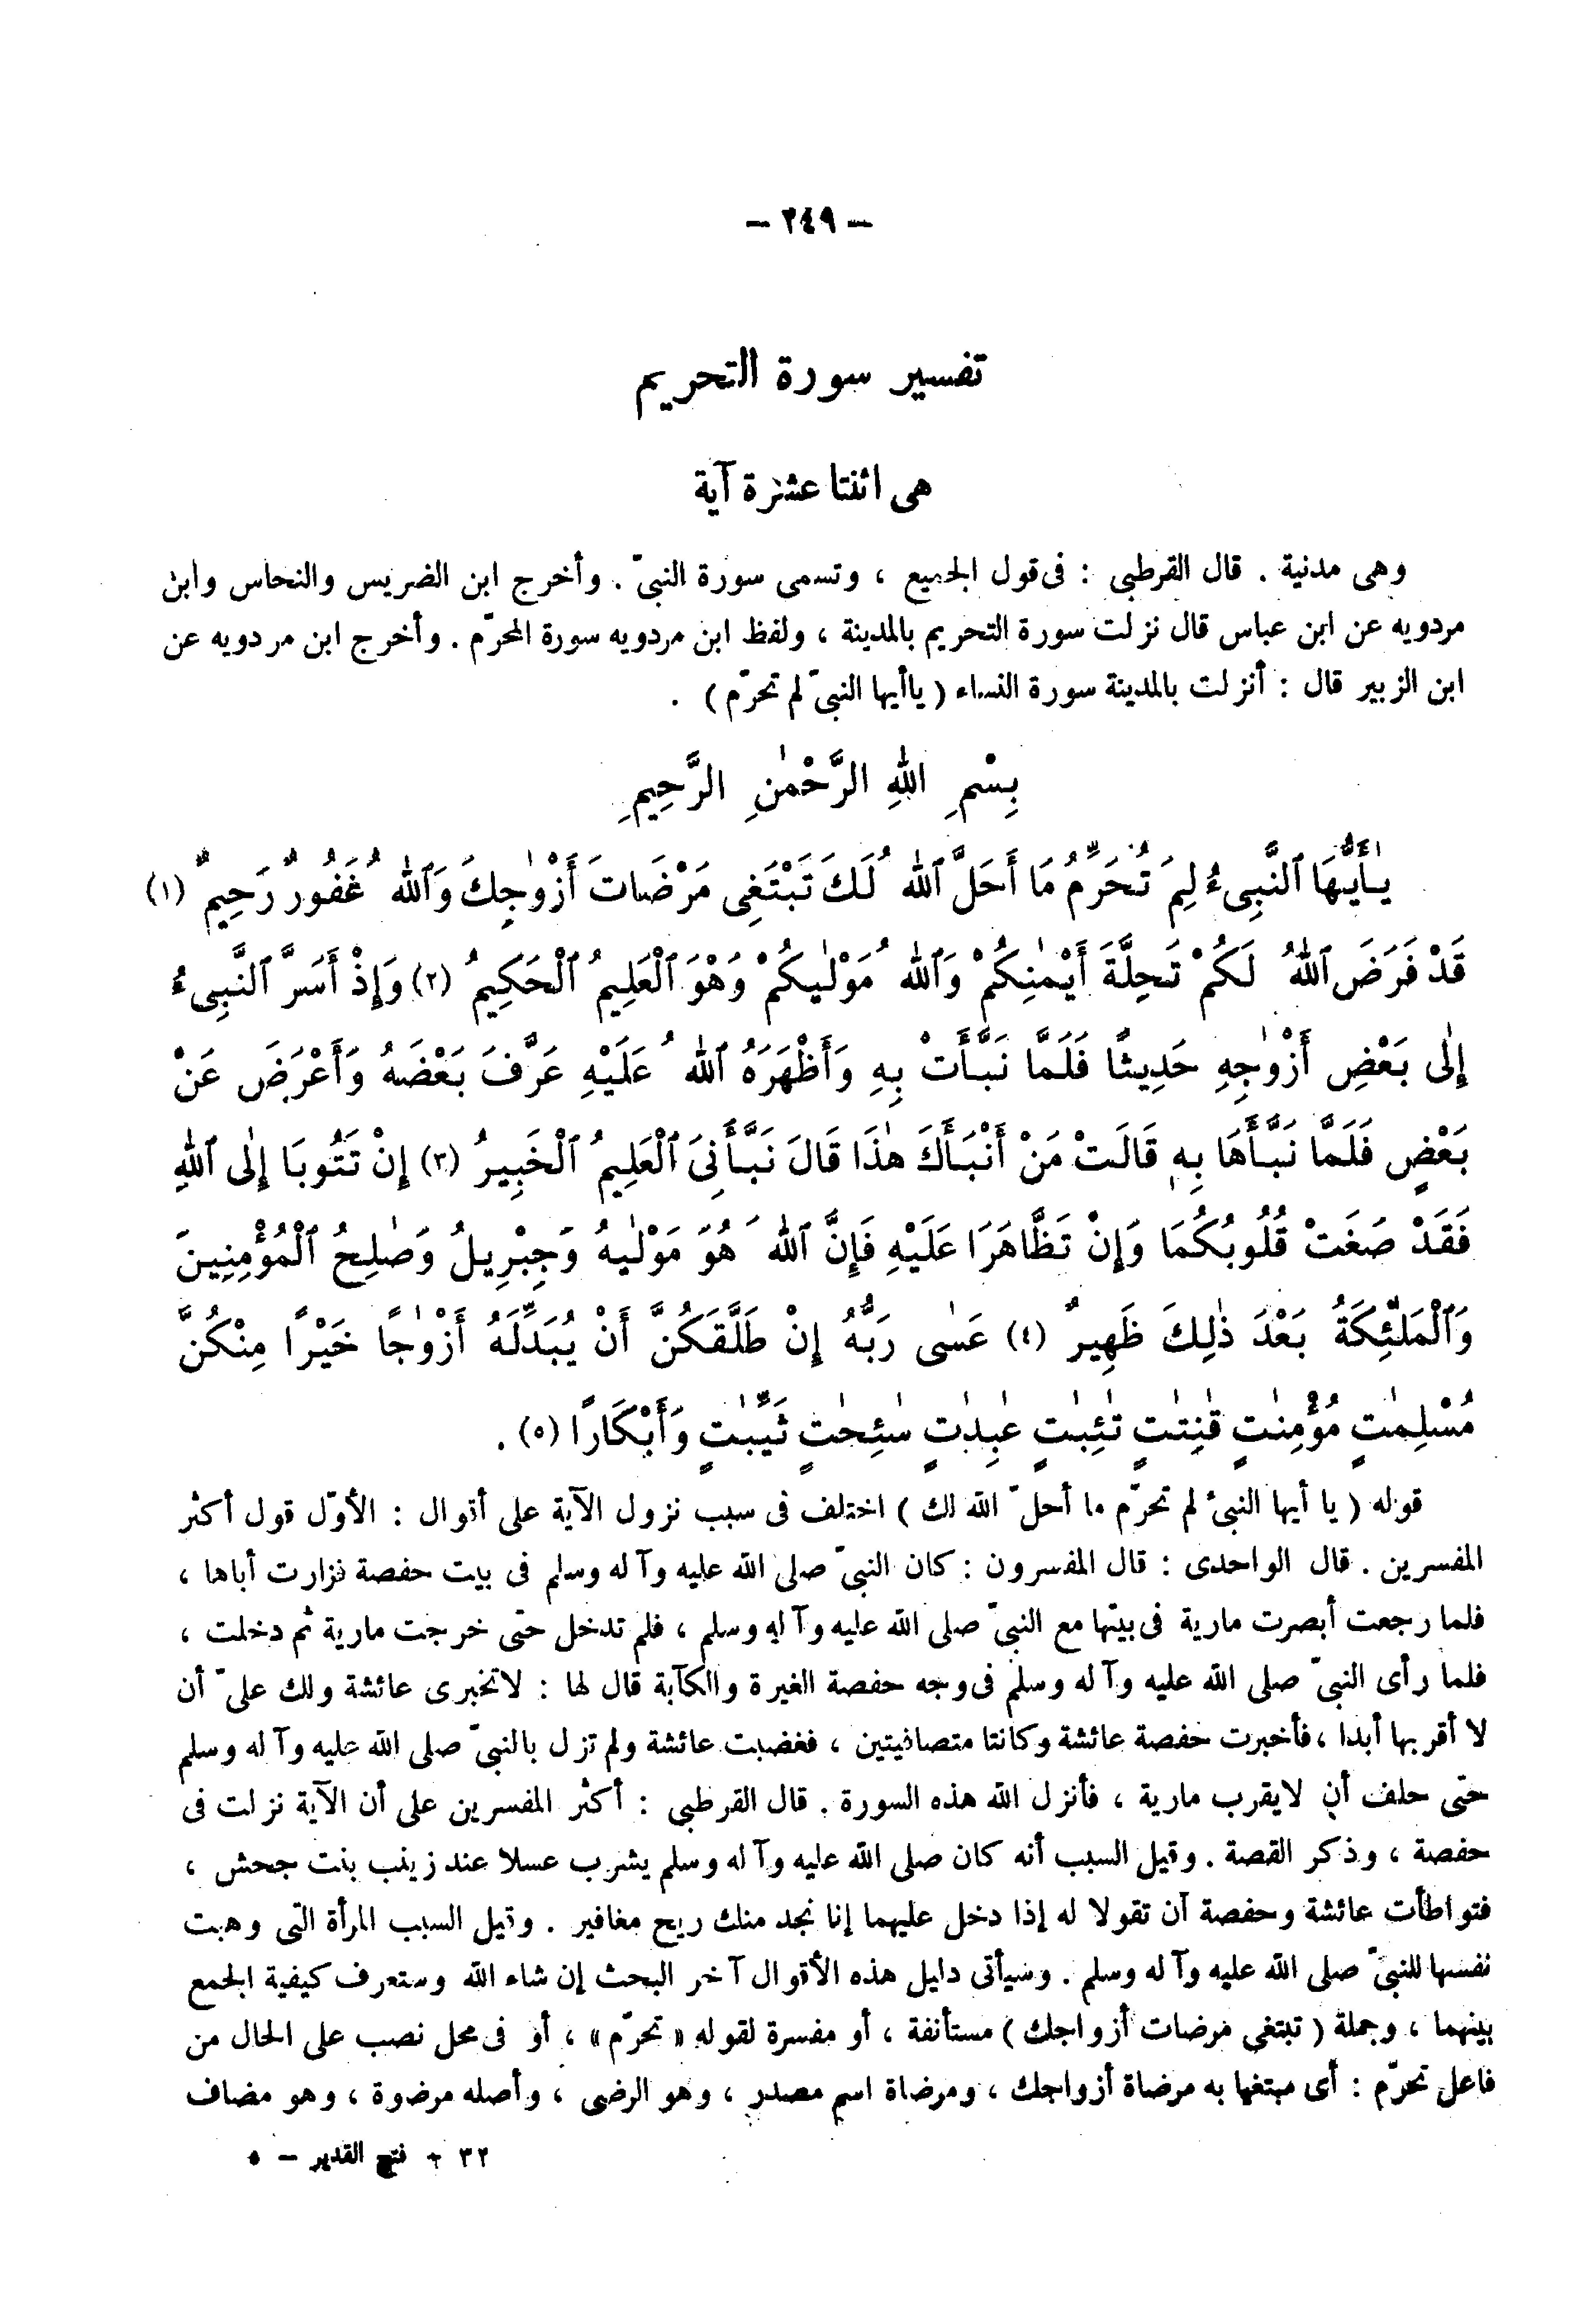 — ٢٤٩ —
تفسير سورة التحريم
هى اثنتا عشرة آية
وهى مدنية . قال القرطبى : فى قول الجميع ، وتسمى سورة النبىّ . وأخرج ابن الضريس والنحاس وابن
مردويه عن ابن عباس قال نزلت سورة التحريم بالمدينة ، ولفظ ابن مردويه سورة المحرّم . وأخرج ابن مردويه عن
ابن الزبير قال : أنزلت بالمدينة سورة النساء ( ياأيها النبىّ لم تحرّم ) .
بِسْمِ اللهِ الرَّحْمٰنِ الرَّحِيمِ
يٰأَيُّهَا ٱلنَّبِىءُ لِمَ تُحَرِّمُ مَا أَحَلَّ ٱللهُ لَكَ تَبْتَغِى مَرْضَاتَ أَزْوٰجِكَ وَٱللهُ غَفُورٌ رَحِيمٌ (١)
قَدْ فَرَضَ ٱللهُ لَكُمْ تَحِلَّةَ أَيْمٰنِكُمْ وَٱللهُ مَوْلٰيكُمْ وَهْوَ ٱلْعَلِيمُ ٱلْحَكِيمُ (٢) وَإِذْ أَسَرَّ ٱلنَّبِىءُ
إِلٰى بَعْضِ أَزْوٰجِهِ حَدِيثًا فَلَمَّا نَبَّأَتْ بِهِ وَأَظْهَرَهُ ٱللهُ عَلَيْهِ عَرَّفَ بَعْضَهُ وَأَعْرَضَ عَنْ
بَعْضٍ فَلَمَّا نَبَّأَهَا بِهِ قَالَتْ مَنْ أَنْبَأَكَ هٰذَا قَالَ نَبَّأَنِىَ ٱلْعَلِيمُ ٱلْخَبِيرُ (٣) إِنْ تَتُوبَا إِلٰى ٱللهِ
فَقَدْ صَغَتْ قُلُوبُكُمَا وَإِنْ تَظَّاهَرَا عَلَيْهِ فَإِنَّ ٱللهَ هُوَ مَوْلٰيهُ وَجِبْرِيلُ وَصٰلِحُ ٱلْمُؤْمِنِينَ
وَٱلْمَلٰئِكَةُ بَعْدَ ذٰلِكَ ظَهِيرٌ (٤) عَسٰى رَبُّهُ إِنْ طَلَّقَكُنَّ أَنْ يُبَدِّلَهُ أَزْوٰجًا خَيْرًا مِنْكُنَّ
مُسْلِمٰتٍ مُؤْمِنٰتٍ قٰنِتٰتٍ تٰئِبٰتٍ عٰبِدٰتٍ سٰئِحٰتٍ ثَيِّبٰتٍ وَأَبْكَارًا (٥) .
قوله ( يا أيها النبىُّ لم تحرّم ما أحلّ الله لك ) اختلف فى سبب نزول الآية على أقوال : الأوّل قول أكثر
المفسرين . قال الواحدى : قال المفسرون : كان النبىّ صلى الله عليه وآله وسلم فى بيت حفصة فزارت أباها ،
فلما رجعت أبصرت مارية فى بيتها مع النبىّ صلى الله عليه وآله وسلم ، فلم تدخل حتى خرجت مارية ثم دخلت ،
فلما رأى النبىّ صلى الله عليه وآله وسلم فى وجه حفصة الغيرة والكآبة قال لها : لاتخبرى عائشة ولك علىّ أن
لا أقربها أبدا ، فأخبرت حفصة عائشة وكانتا متصافيتين ، فغضبت عائشة ولم تزل بالنبىّ صلى الله عليه وآله وسلم
حتى حلف أن لايقرب مارية ، فأنزل الله هذه السورة . قال القرطبى : أكثر المفسرين على أن الآية نزلت فى
حفصة ، وذكر القصة . وقيل السبب أنه كان صلى الله عليه وآله وسلم يشرب عسلا عند زينب بنت جحش ،
فتواطأت عائشة وحفصة أن تقولا له إذا دخل عليهما إنا نجد منك ريح مغافير . وقيل السبب المرأة التى وهبت
نفسها للنبىّ صلى الله عليه وآله وسلم . وسيأتى دليل هذه الأقوال آخر البحث إن شاء الله وستعرف كيفية الجمع
بينهما ، وجملة ( تبتغى مرضات أزواجك ) مستأنفة ، أو مفسرة لقوله « تحرّم » ، أو فى محل نصب على الحال من
فاعل تحرّم : أى مبتغيا به مرضاة أزواجك ، ومرضاة اسم مصدر ، وهو الرضى ، وأصله مرضوة ، وهو مضاف
٣٢ – فتح القدير – ٥